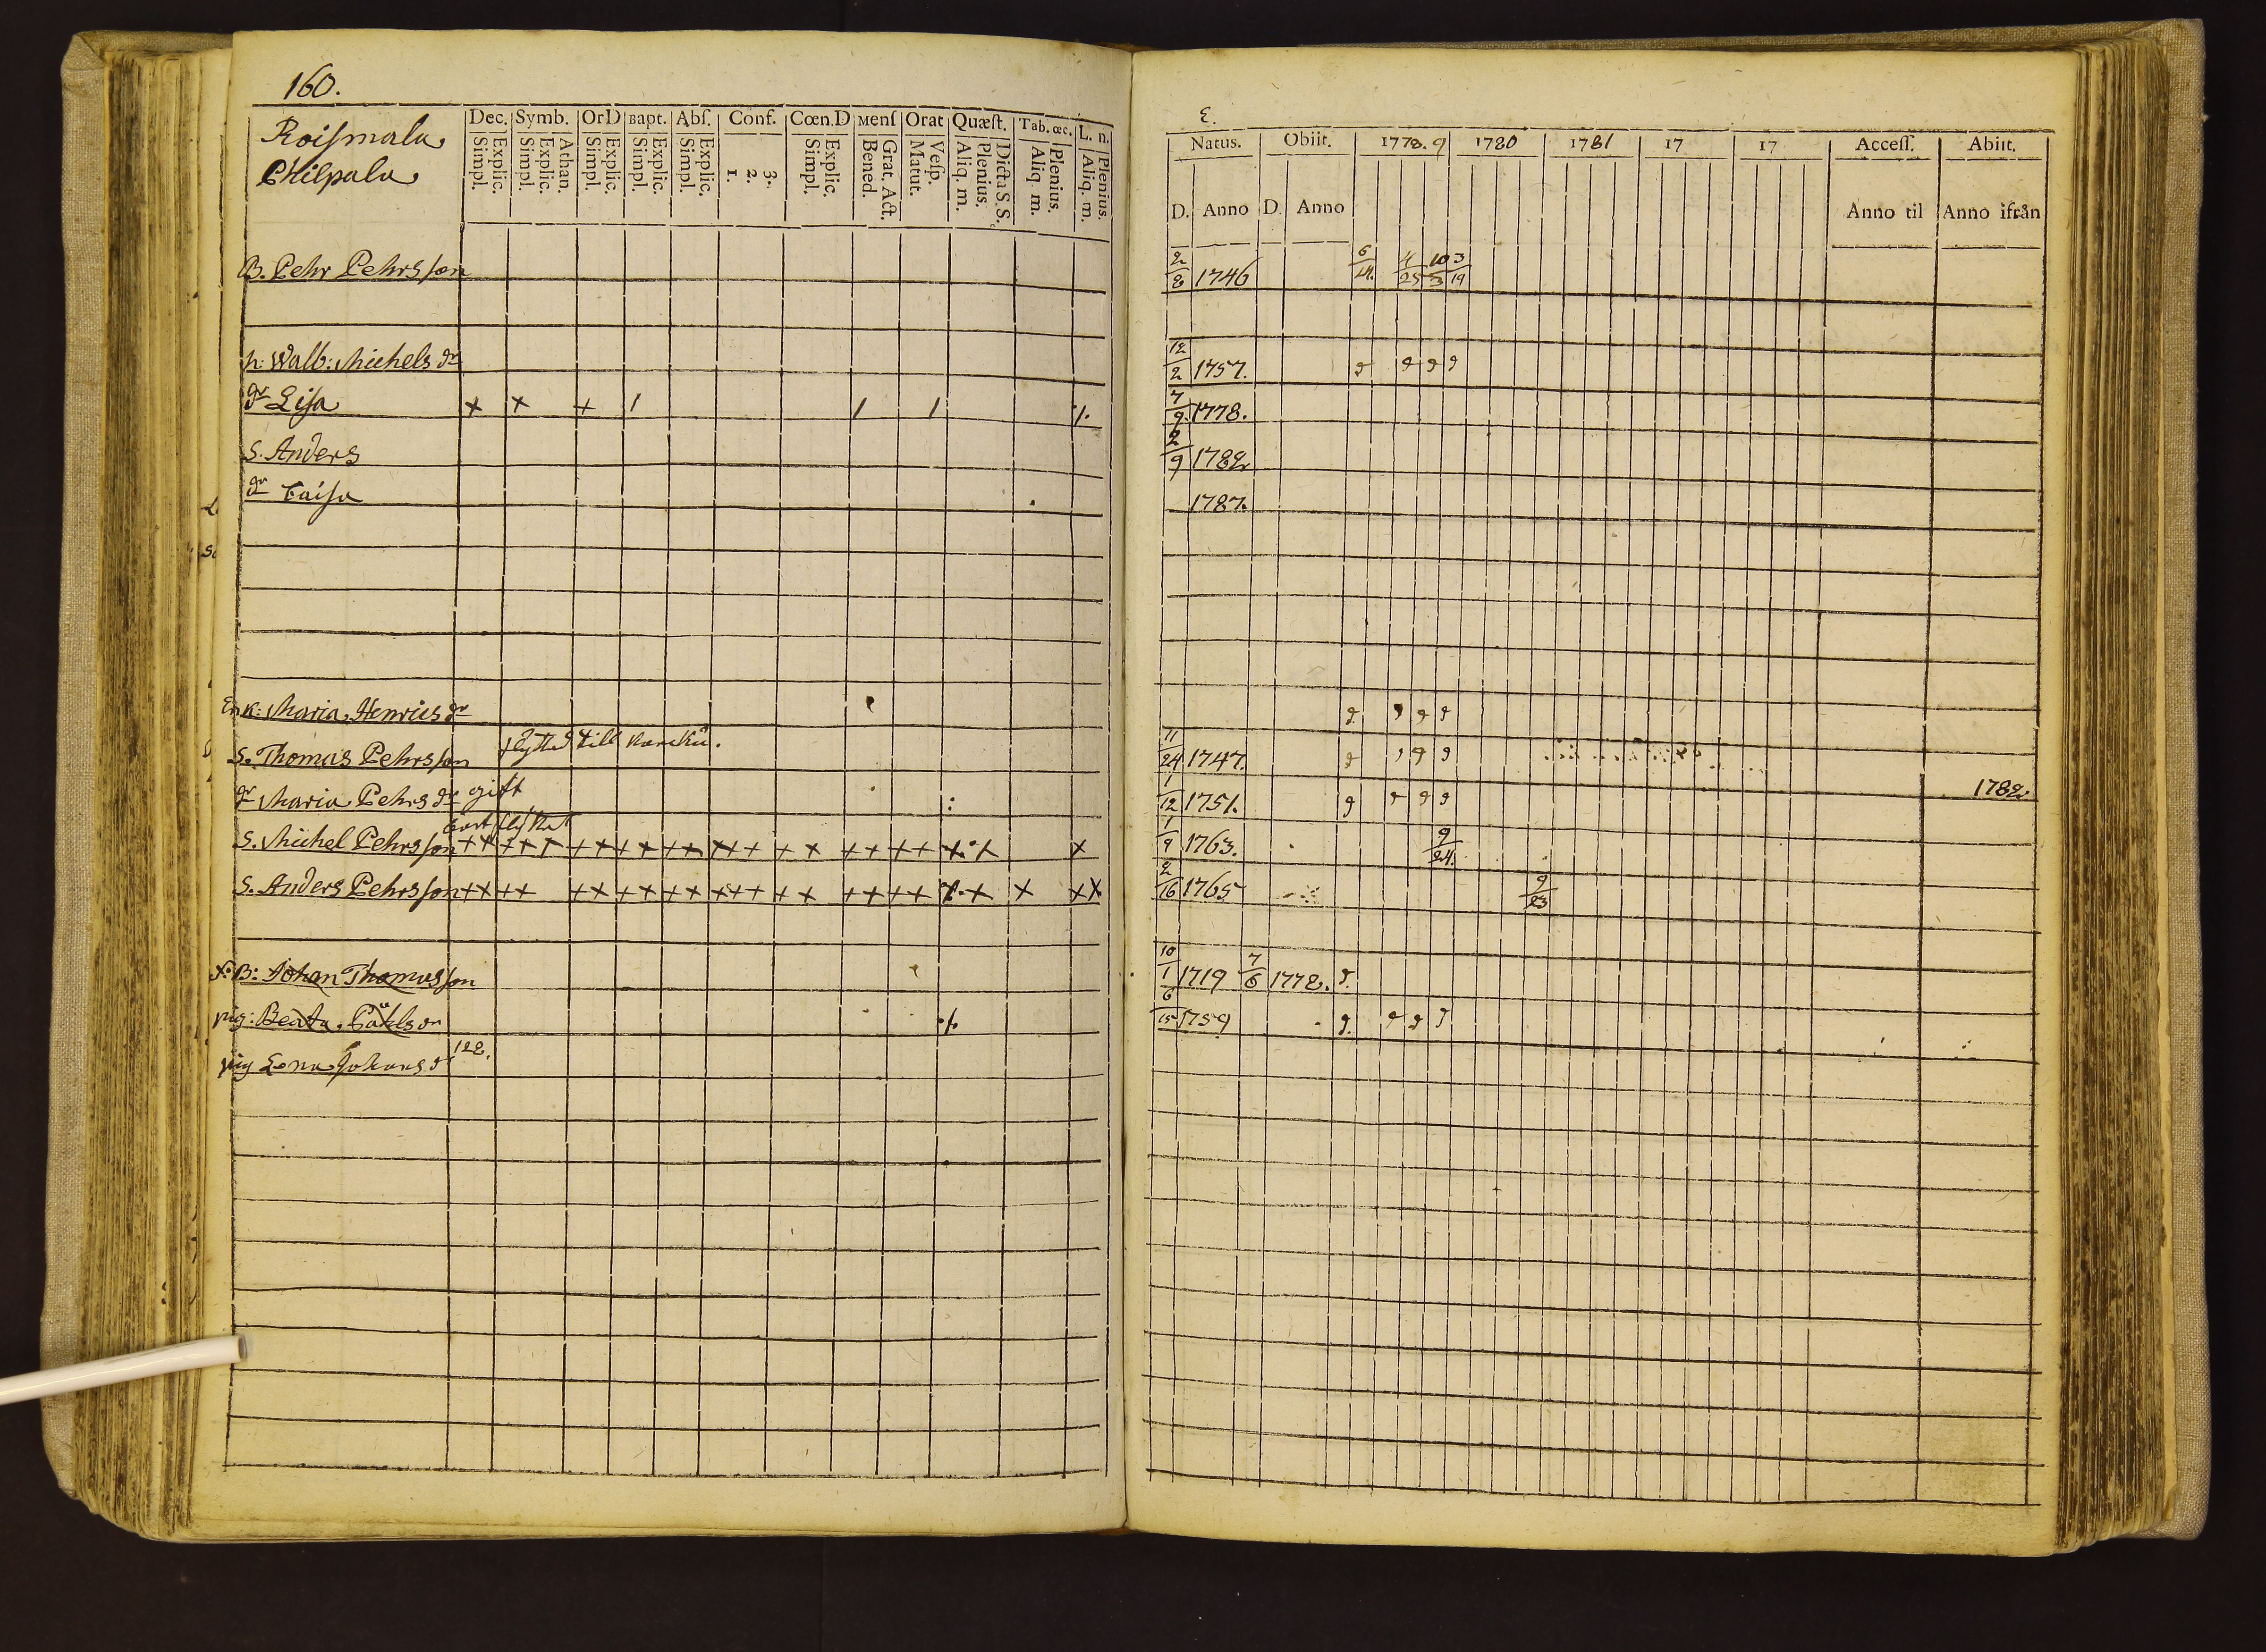 160.
Roismala
Philpala
Dec. Symb. OrD Bapt. Abſ. Conf. Cœn.D Menſ Orat Quæſt. Tab. œc. L. n.
Simpl. Explic. Simpl. Explic. Athan. Simpl. Explic. Simpl. Explic. Simpl. Explic. 1. 2. 3. Simpl. Explic. Bened. Grat. Act. Matut. Veſp. Aliq. m. Plenius. Dicta S. S. Aliq. m. Plenius. Aliq. m. Plenius.
B. Pehr Pehrsson
h: Walb: Michels dr
dr Lisa + + + / / / ·/.
S. Anders
dr Caisa
Enk: Maria Henrics dr
S. Thomas Pehrsson flyttad till
dr Maria Pehrs dr gift
bortflyttat
S. Michel Pehrsson ++ +++ ++ ++ ++ +++ ++ ++ ++ +
S. Anders Pehrsson ++ ++ ++ ++ ++ +++ ++ ++ ++ + ++
Johan Thomasson
pig: Beata
pig Lena Johans dr 122.
E.
Natus. Obiit. 1778. 9 1780 1781 17 17 Acceſſ. Abiit.
D. Anno D. Anno Anno til Anno ifrån
2/8 1746 6/14. 4/25 10/3 3/19
12/2 1757.
7/9. 1778.
2/9 1782
1787.
11/24 1747.
1/12 1751. 1782
1/9 1763. 9/24.
2/16 1765 9/23
10/1 1719 7/6 1778.
6/15 1759